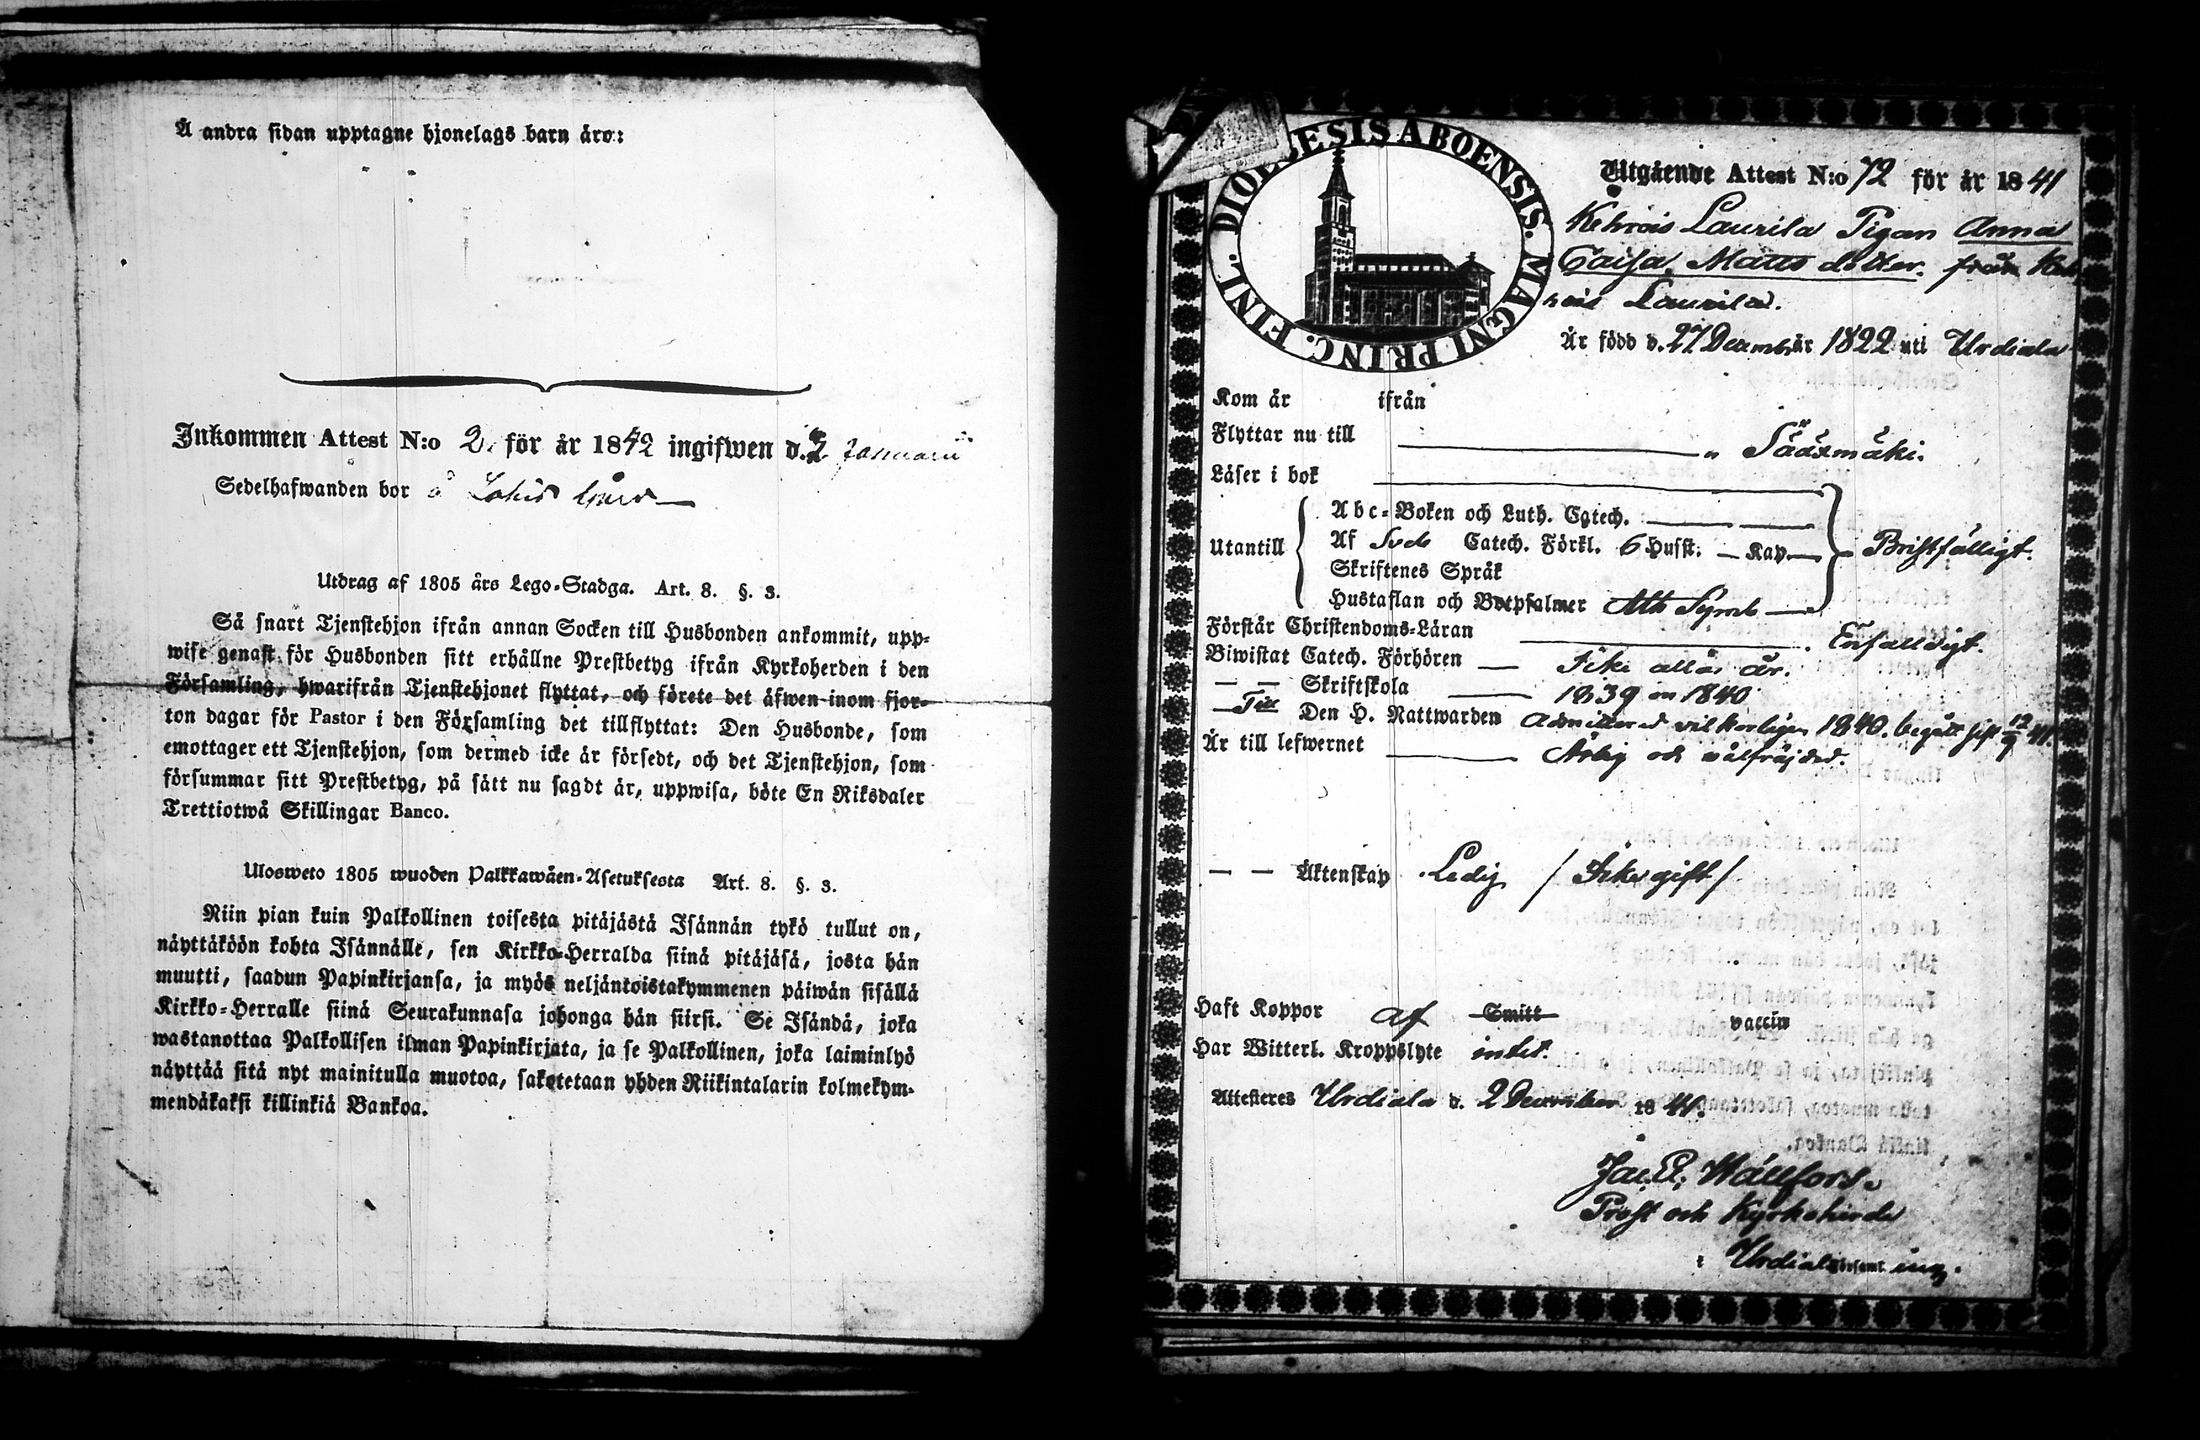 Å andra sidan upptagne hjonelags barn äro:
Inkommen Attest N:o 2. för år 1842 ingifwen d. 2 Januarii
Sedelhafwanden bor å
Utdrag af 1805 års Lego-Stadga. Art. 8. §. 3.
Så snart Tjenstehjon ifrån annan Socken till Husbonden ankommit, upp-
wise genast för Husbonden sitt erhållne Prestbetyg ifrån Kyrkoherden i den
Församling, hwarifrån Tjenstehjonet flyttat, och förete det äfwen inom fjor-
ton dagar för Pastor i den Församling det tillflyttat: Den Husbonde, som
emottager ett Tjenstehjon, som dermed icke är försedt, och det Tjenstehjon, som
försummar sitt Prestbetyg, på sätt nu sagdt är, uppwisa, böte En Riksdaler
Trettiotwå Skillingar Banco.
Ulosweto 1805 wuoden Palkkawäen-Asetuksesta Art. 8. §. 3.
Niin pian kuin Palkollinen toisesta pitäjästä Isännän tykö tullut on,
näyttäköön kohta Isännälle, sen Kirkko-Herralda siinä pitäjäsä, josta hän
muutti, saadun Papinkirjansa, ja myös neljäntoistakymmenen päiwän sisällä
Kirkko-Herralle siinä Seurakunnasa johonga hän siirsi. Se Isändä, joka
wastanottaa Palkollisen ilman Papinkirjata, ja se Palkollinen, joka laiminlyö
näyttää sitä nyt mainitulla muotoa, saketetaan yhden Riikintalarin kolmekym-
mendäkaksi killinkiä Bankoa.
DIOECESIS ABOENSIS. MAGNI PRINC. FINL.
Utgående Attest N:o 72 för år 1841
Kehrois Laurila Pigan Anna
Caisa Matts dotter. från Keh
rois Laurila.
Är född d. 27 Decemb. år 1822 uti Urdiala
Kom år ifrån
Flyttar nu till " Sääxmäki.
Läser i bok
Utantill
Abc-Boken och Luth. Catech.
Af Sveb Catech. Förkl. 6 Husst. Kap Bristfälligt.
Skriftenes Språk
Hustaflan och Botpsalmer Ath Symb
Förstår Christendoms-Läran Enfalldigt.
Biwistat Catech. Förhören Icke alla år.
Skriftskola 1839 en 1840
Till Den H. Nattwarden Admitterad vilkorligen 1840. begått sist 12/9 41.
Är till lefwernet Ärlig och välfräjdad.
Äktenskap Ledig / Icke gift /
Haft Koppor af Smitt vaccin
Har Witterl. Kroppslyte intet.
Attesteres Urdiala d. 2 December 1841.
Jac. E. Wallfors.
Prost och Kyrkoherde
i Urdiala församling.